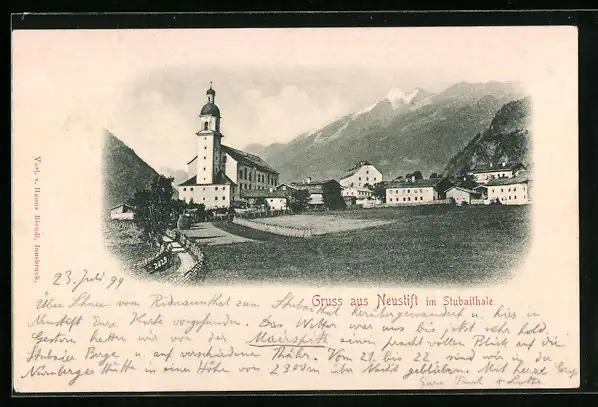 Verl. v. Hanns Bierdl, Innsbruck.
Gruss aus Neustift im Stubaithale
23. Juli 99
Über Schnee vom Ridnaunthal zum Stubaithal herübergewandert u. hier in
Neustift Eure Karte vorgefunden. Das Wetter war uns bis jetzt sehr hold.
Gestern hatten wir von der Mairspitz einen prachtvollen Blick auf die
Stubaier Berge u. auf verschiedene Thäler. Vom 21. bis 22. sind wir in der
Nürnberger Hütte in einer Höhe von 2300m über geblieben. Mit herzl.
Eure